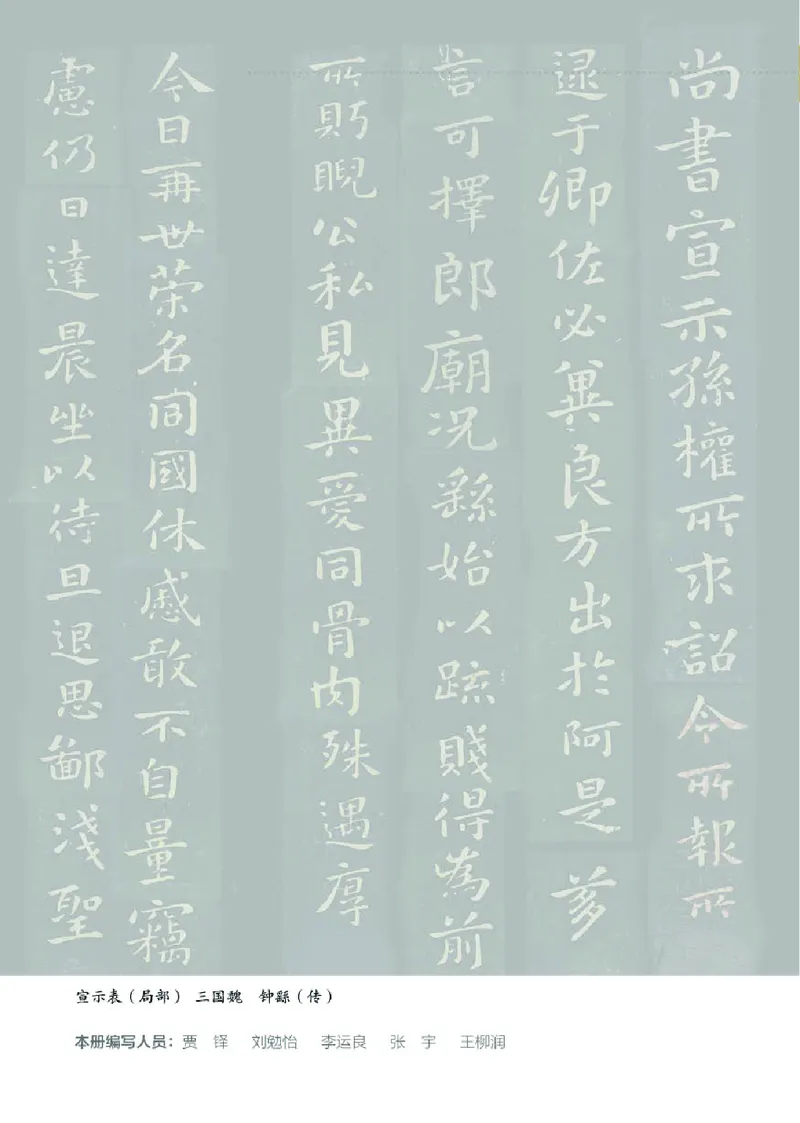 尚書宣示孫權所求詔令所報所
逮于卿佐必冀良方出於阿是芻
言可擇郎廟況繇始以疏賤得為前
所眄睨公私見異愛同骨肉殊遇厚
今日再世荣名同國休慼敢不自量竊
慮仍日達晨坐以待旦退思鄙淺聖
宣示表（局部） 三国魏 钟繇（传）
本册编写人员：贾 铎 刘勉怡 李运良 张 宇 王柳润